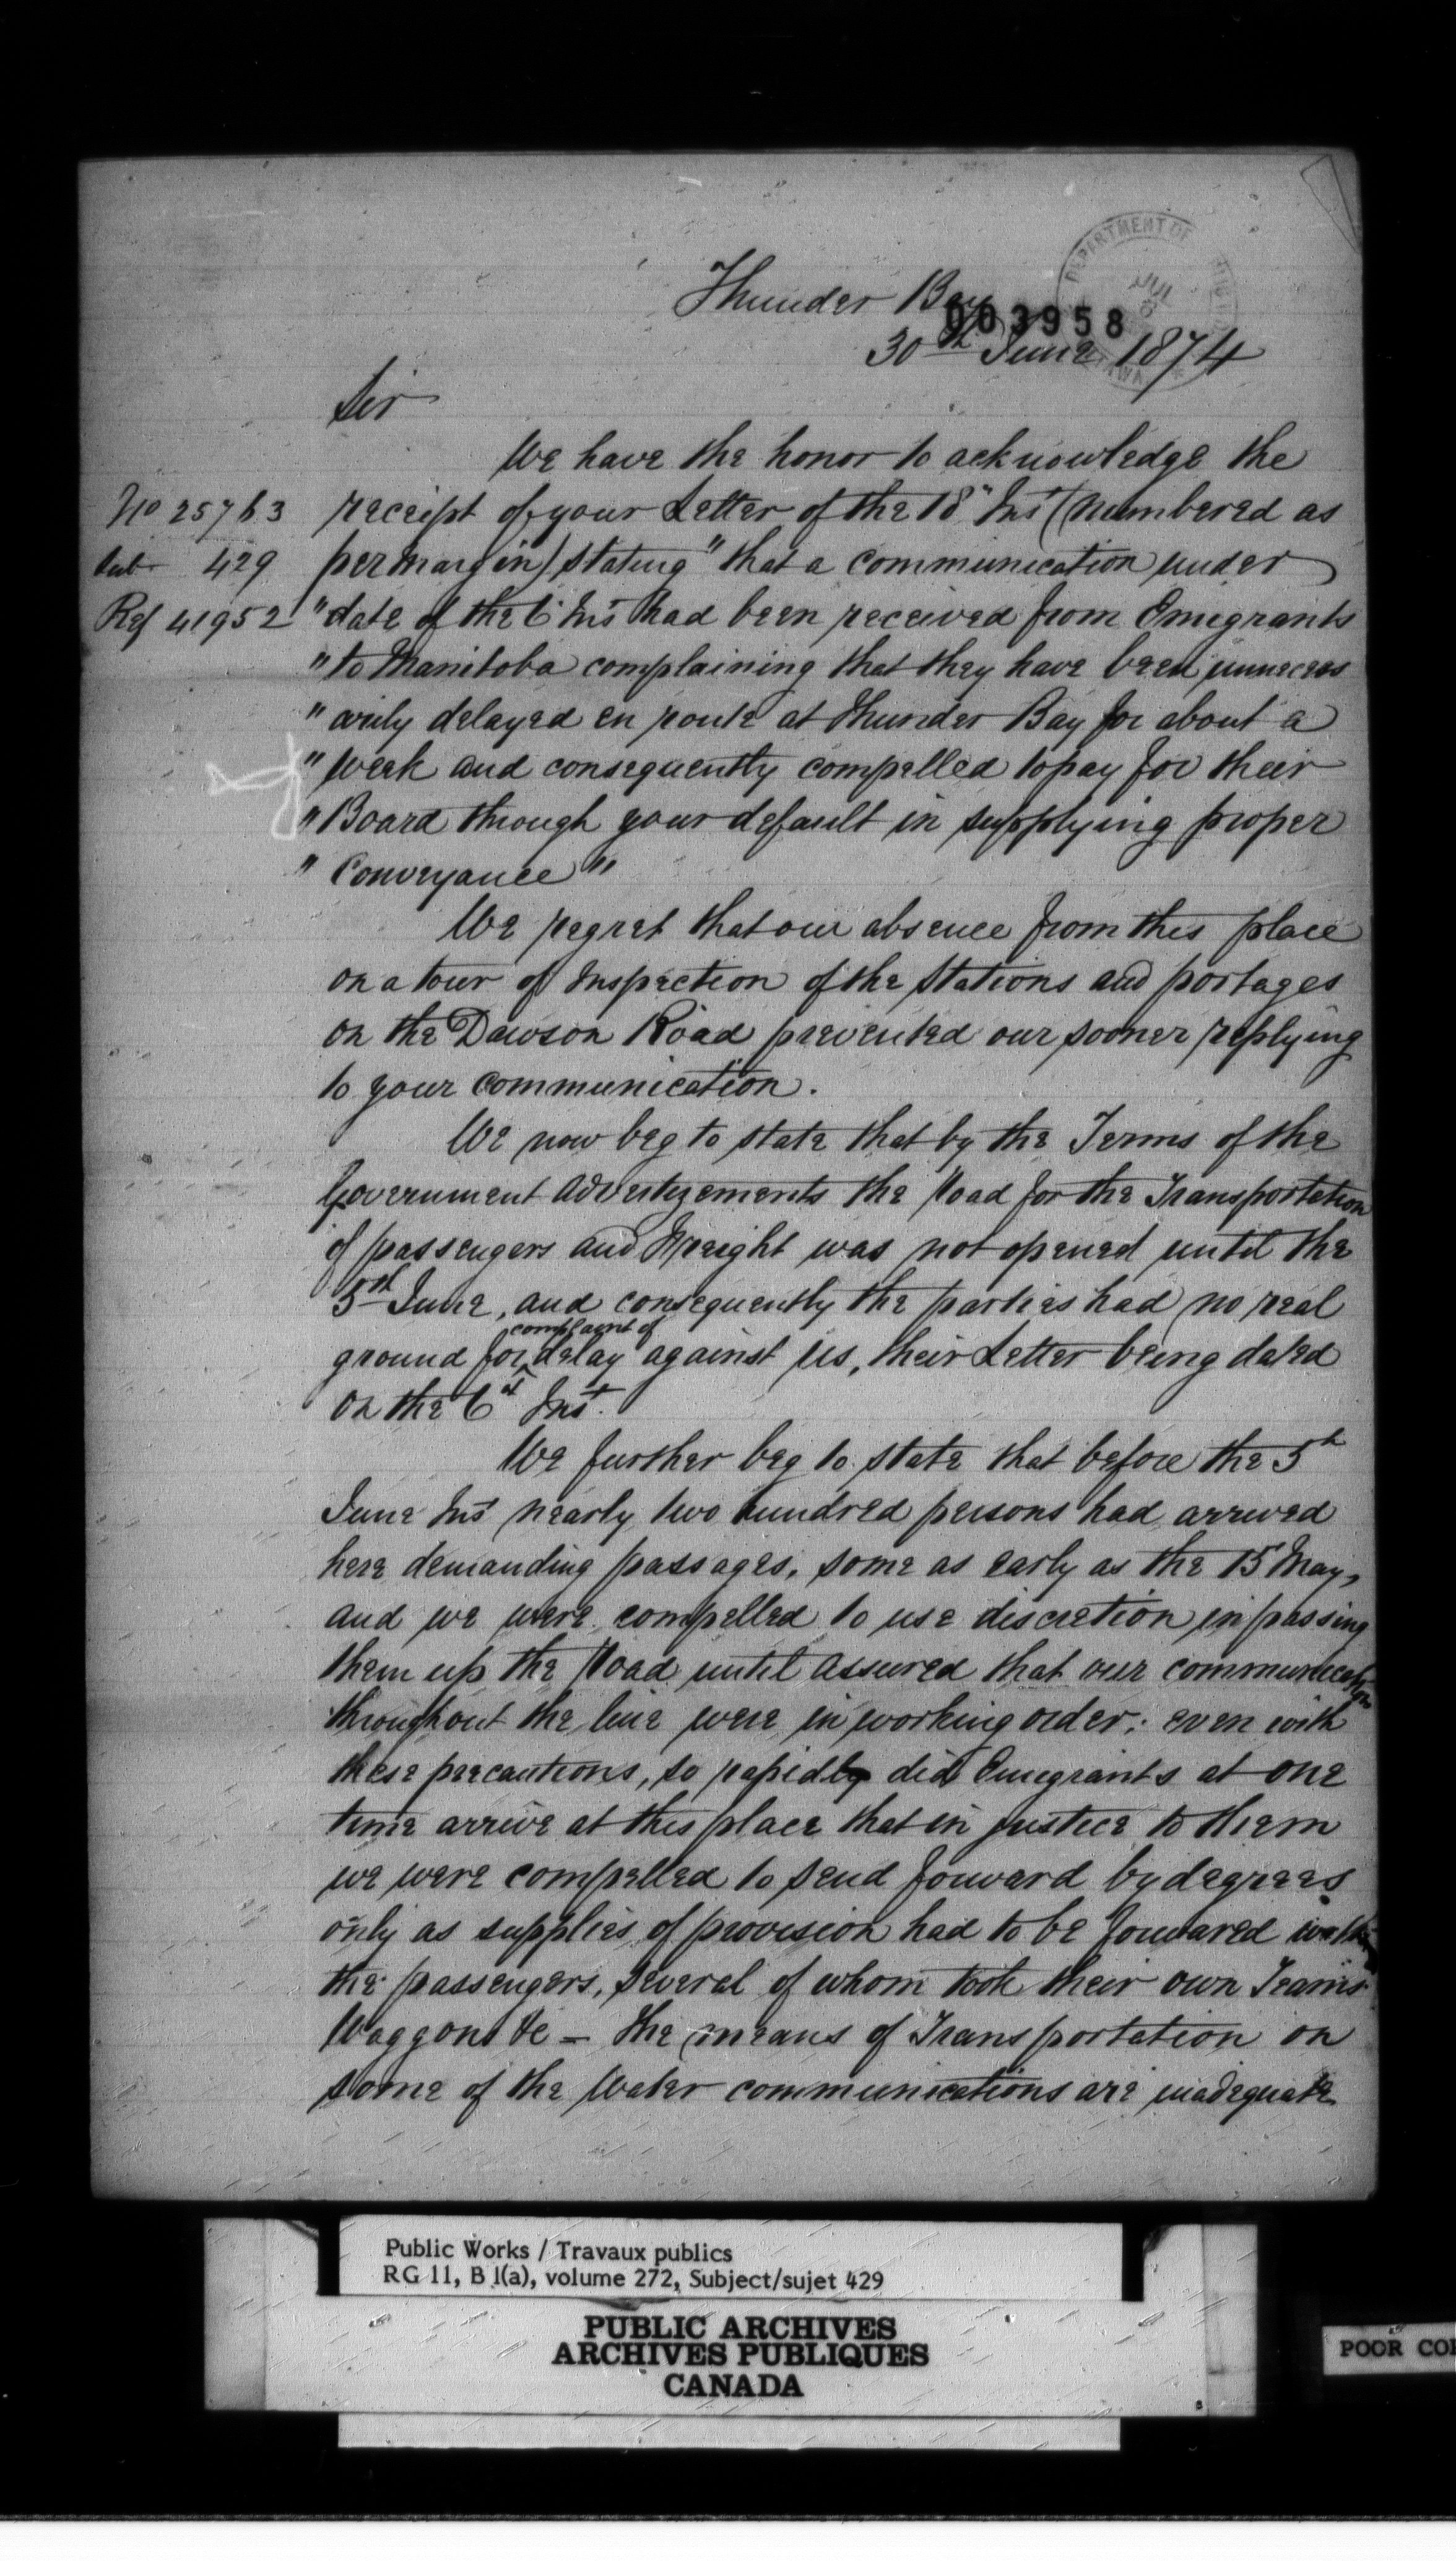 Thunder Bay
003958
30th June 1874
DEPARTMENT OF
JUL
Sir
We have the honor to acknowledge the
No 25763 receipt of your Letter of the 18" Inst (numbered as
Sub 429 per margin) stating "that a communication under
Ref 41952 "date of the 6 Inst had been received from Emigrants
"to Manitoba complaining that they have been unnecess
"arily delayed en route at Thunder Bay for about a
"week and consequently compelled to pay for their
"Board through your default in supplying proper
"Conveyance"
We regret that our absence from this place
on a tour of Inspection of the Stations and portages
on the Dawson Road prevented our sooner replying
to your communication.
We now beg to state that by the Terms of the
Government advertizements the Road for the Transportation
of passengers and Freight was not opened until the
5th June, and consequently the parties had no real
complaint of
ground for delay against us, their Letter being dated
on the 6th Inst.
We further beg to state that before the 5th
June Inst nearly two hundred persons had arrived
here demanding passages, some as early as the 15 May,
and we were compelled to use discretion in passing
them up the Road until assured that our communication
throughout the line were in working order; even with
these precautions, so rapidly did Emigrants at one
time arrive at this place that in justice to them
we were compelled to send forward by degrees
only as supplies of provision had to be forwared with
the passengers, several of whom took their own Teams
Waggons &c - the means of Transportation on
some of the Water communications are inadequate
Public Works / Travaux publics
RG 11, B 1(a), volume 272, Subject/sujet 429
PUBLIC ARCHIVES
ARCHIVES PUBLIQUES
CANADA
POOR COP